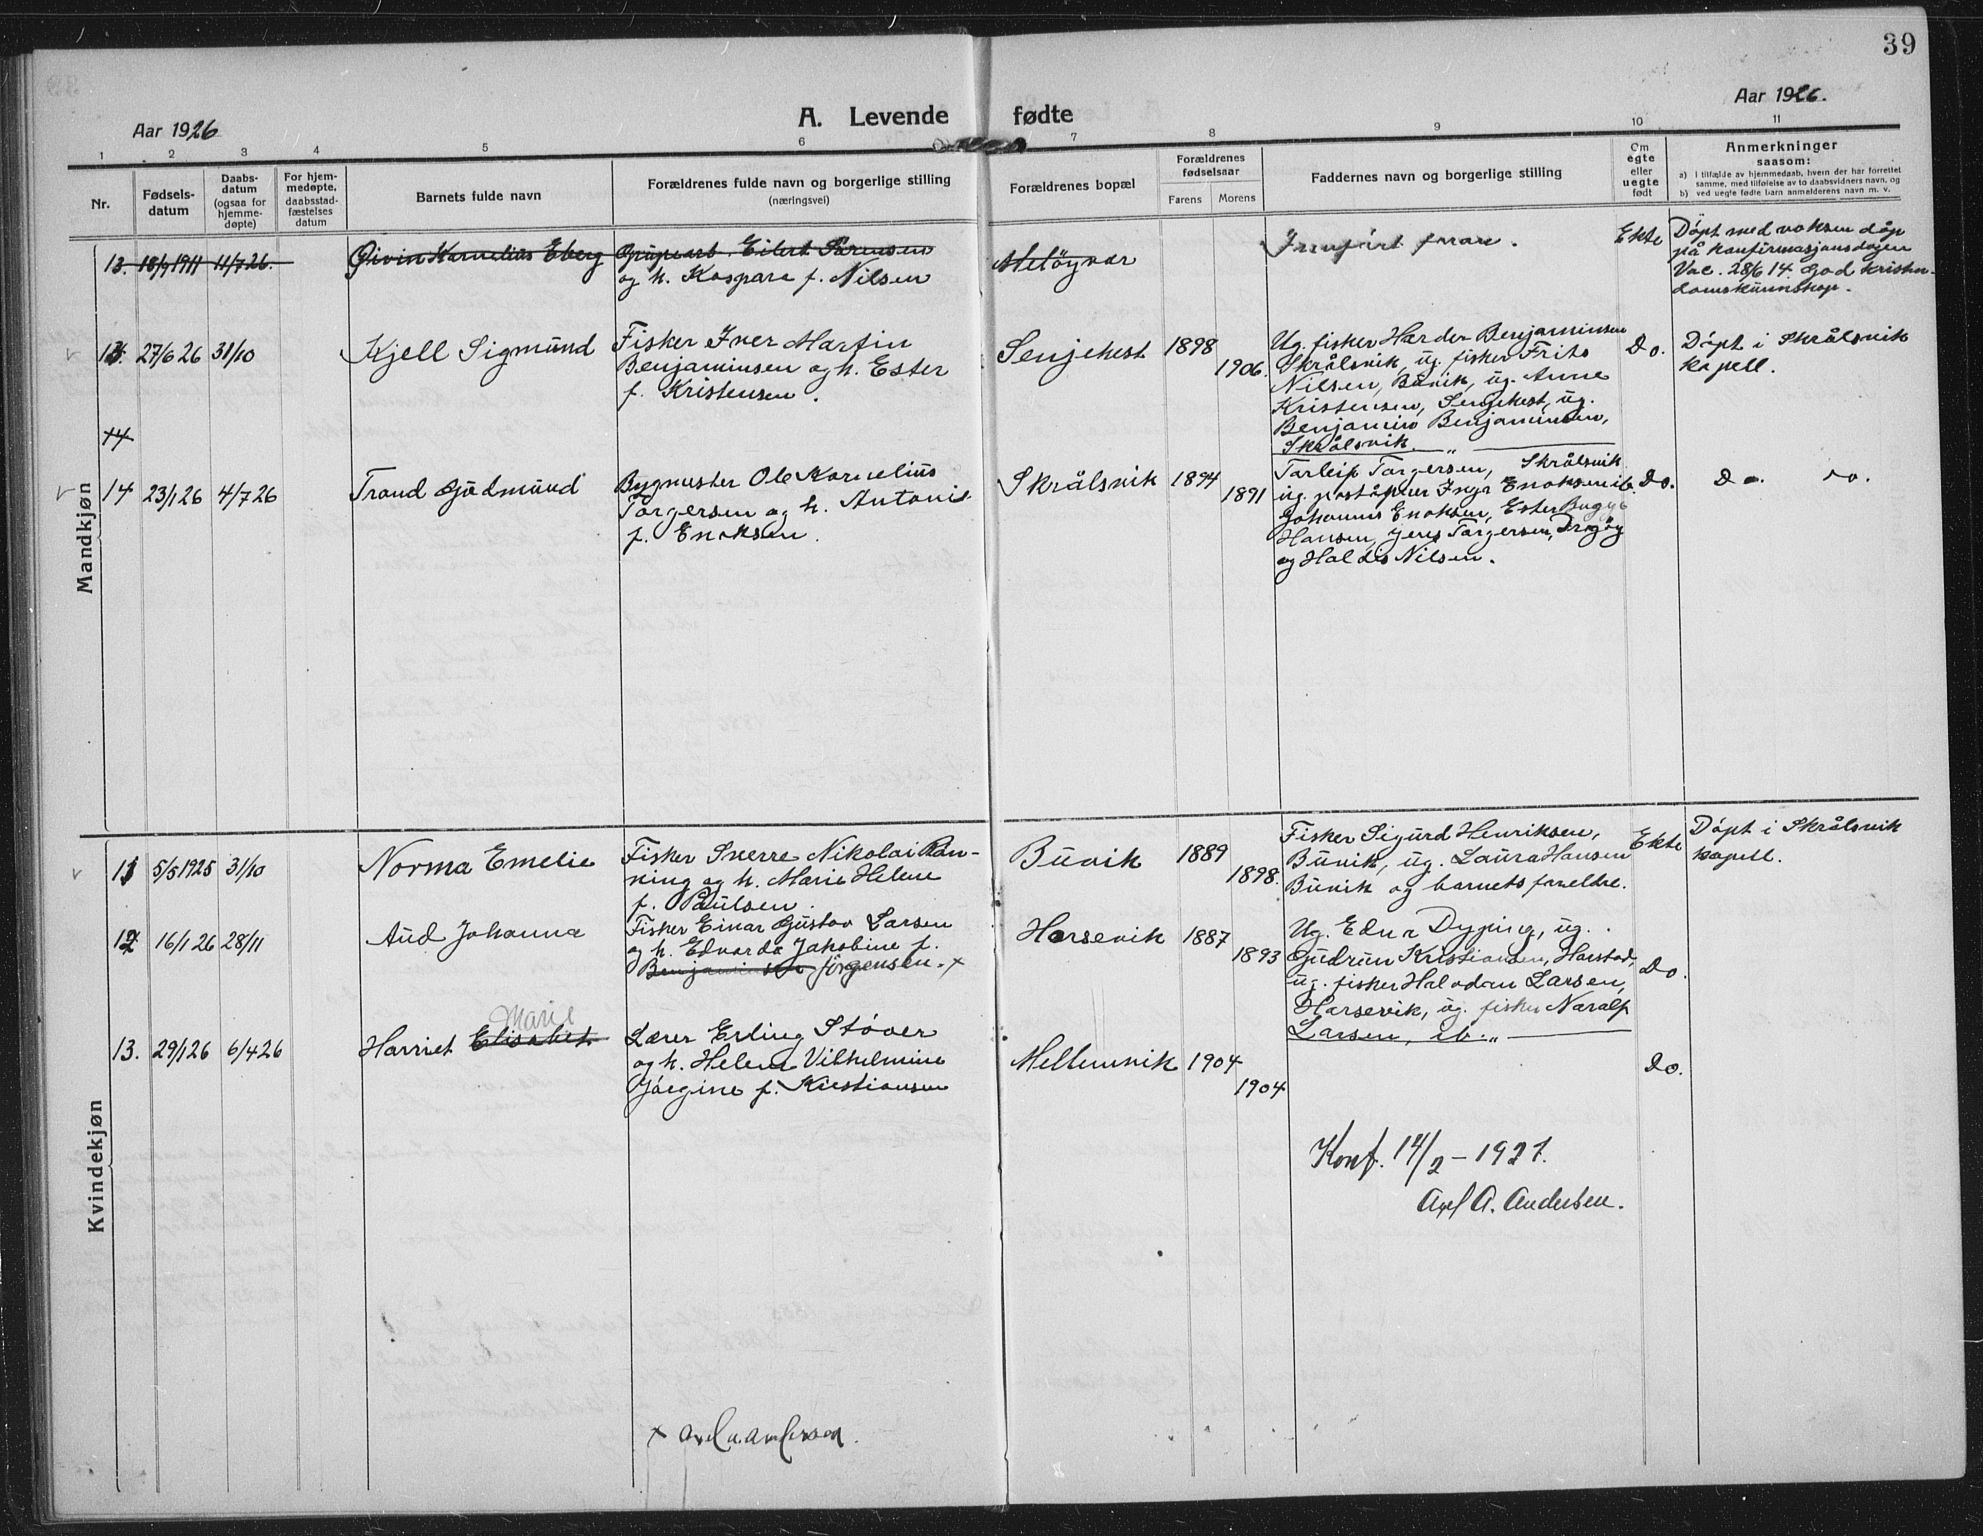 39
Aar 1926
A. Levende fødte
Aar 1926.
1 2 3 4 5 6 7 8 9 10 11
Nr.
Fødsels-
datum
Daabs-
datum
(ogsaa for
hjemme-
døpte)
For hjem-
medøpte,
daabsstad-
fæstelses
datum
Barnets fulde navn
Forældrenes fulde navn og borgerlige stilling
(næringsvei)
Forældrenes bopæl
Forældrenes
fødselsaar
Farens Morens
Faddernes navn og borgerlige stilling
Om
egte
eller
uegte
født
Anmerkninger
saasom:
a) i tilfælde av hjemmedaab, hvem der har forrettet
samme, med tilføielse av to daabsvidners navn, og
b) ved uegte fødte barn anmelderens navn m. v.
Mandkjøn
13. 18/9 1911 11/7 26.
Øivin Kornelius Eberg
Eilert Sørensen
og h. Kaspara f. Nilsen
Meløyvær
Innført foran.
Ekte
Døpt med voksen dåp
på konfirmasjonsdagen
Vac. 28/6 14. God kristen-
domskunnskap.
13. 27/6 26 31/10
Kjell Sigmund
Fisker Iver Martin
Benjaminsen og h. Ester
f. Kristensen.
Senjehest
1898
1906.
Ug. fisker Harder Benjaminsen
Skrålsvik, ug. fisker Frits
Nilsen, Buvik, ug. Anne
Kristensen, Senjehest, ug.
Benjamin Benjaminsen,
Skrålsvik. "
Do.
Døpt i Skrålsvik
kapell.
14
14 23/1 26 4/7 26
Trond Gudmund
Bygmester Ole Kornelius
Torgersen og h. Antonie
f. Enoksen.
Skrålsvik
1894
1891
Torleif Torgersen, Skrålsvik
ug. poståpner Inga Enoksen ib.
Johannes Enoksen, Ester Bugge
Hansen, Jens Torgersen, Dragøy
og Haldis Nilsen.
Do.
Do. Do.
Kvindekjøn
11 5/5 1925 31/10
Norma Emelie
Fisker Sverre Nikolai Røn-
ning og h. Marie Helene
f. Paulsen.
Buvik
1889
1898.
Fisker Sigurd Henriksen,
Buvik, ug. Laura Hansen
Buvik og barnets foreldre.
Ekte
Døpt i Skrålsvik
kapell.
12 16/1 26 28/11
Aud Johanna
Fisker Einar Gustav Larsen
og h. Edvarda Jakobine f.
Benjaminsen Jørgensen. x
Horsevik
1887
1893
Ug. Edna Dyping, ug.
Gudrun Kristiansen, Harstad,
ug. fisker Halvdan Larsen,
Horsevik, ug. fisker Naralf
Larsen, ib. "
Do.
13. 29/1 26 6/4 26
Marie
Harriet Elisabet
Lærer Erling Støver
og h. Helene Vilhelmine
Jørgine f. Kristiansen
Mellemvik
1904
1904
Do.
Konf. 14/2 – 1927.
Axel A. Andersen.
x Axel A. Andersen.